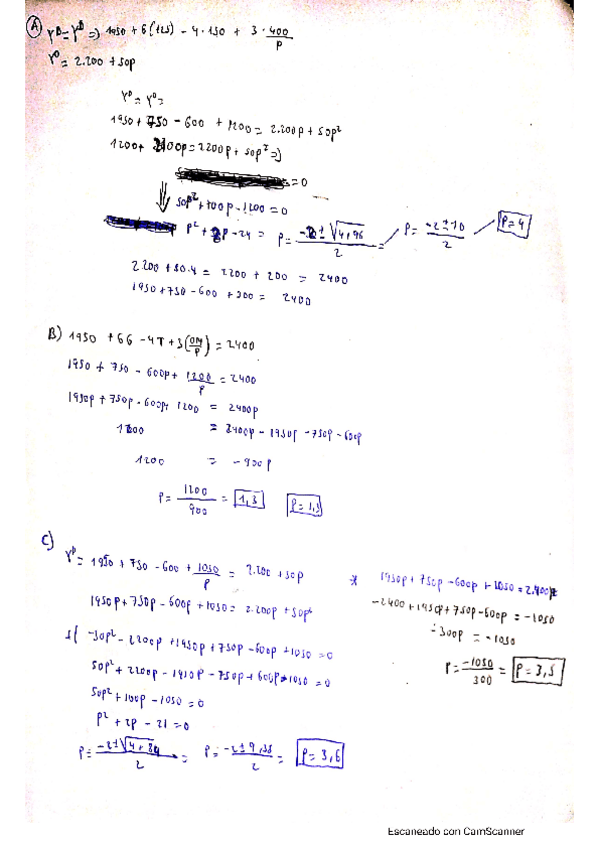 A) Y^D = Y^D => 1950 + 6(125) - 4·150 + 3·400/P
Y^D = 2.200 + 50p
Y^D = Y^D =
1950 + 750 - 600 + 1200 = 2.200p + 50p²
1200 + 2100p = 2200p + 50p² =>
= 0
50p² + 100p - 1200 = 0
p² + 2p - 24 = P = -2 ± √4+96 / 2 = P = -2 ± 10 / 2 P=4
2200 + 50·4 = 2200 + 200 = 2400
1950 + 750 - 600 + 300 = 2400
B) 1950 + 6G - 4T + 3(OM/P) = 2400
1950 + 750 - 600p + 1200/P = 2400
1950p + 750p - 600p + 1200 = 2400p
1200 = 2400p - 1950p - 750p - 600p
1200 = -900p
P = 1200/900 = 1,3 P=1,3
C) Y^D = 1950 + 750 - 600 + 1050/P = 2.200 + 50p
1950p + 750p - 600p + 1050 = 2.200p + 50p²
-50p² - 2200p + 1950p + 750p - 600p + 1050 = 0
50p² + 2200p - 1950p - 750p + 600p - 1050 = 0
50p² + 100p - 1050 = 0
p² + 2p - 21 = 0
P = -2 ± √4+84 / 2 = P = -2 ± 9,38 / 2 = P=3,6
* 1950p + 750p - 600p + 1050 = 2.400p
-2400 + 1950p + 750p - 600p = -1050
-300p = -1050
P = -1050/300 = P=3,5
Escaneado con CamScanner